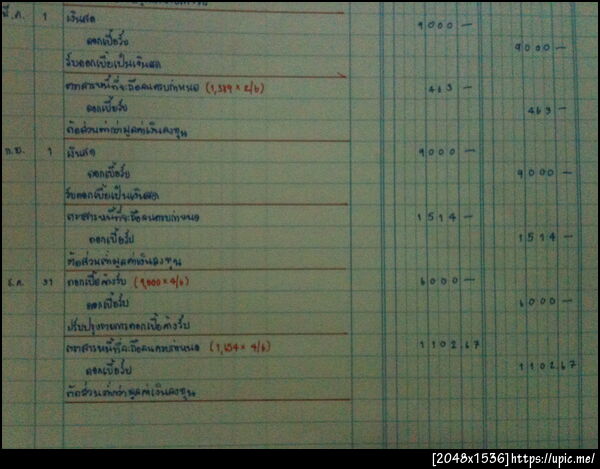 มี.ค. 1 เงินสด 9000 —
ดอกเบี้ยรับ 9000 —
รับดอกเบี้ยเป็นเงินสด
ตราสารหนี้ที่จะถือจนครบกำหนด (1,389 × 2/6) 463 —
ดอกเบี้ยรับ 463 —
ตัดส่วนต่ำกว่ามูลค่าเงินลงทุน
ก.ย. 1 เงินสด 9000 —
ดอกเบี้ยรับ 9000 —
รับดอกเบี้ยเป็นเงินสด
ตราสารหนี้ที่จะถือจนครบกำหนด 1514 —
ดอกเบี้ยรับ 1514 —
ตัดส่วนต่ำมูลค่าเงินลงทุน
ธ.ค. 31 ดอกเบี้ยค้างรับ (9,000 × 4/6) 6000 —
ดอกเบี้ยรับ 6000 —
ปรับปรุงรายการดอกเบี้ยค้างรับ
ตราสารหนี้ที่จะถือจนครบกำหนด (1,654 × 4/6) 1102.67
ดอกเบี้ยรับ 1102.67
ตัดส่วนต่ำกว่ามูลค่าเงินลงทุน
[2048x1536]https://upic.me/